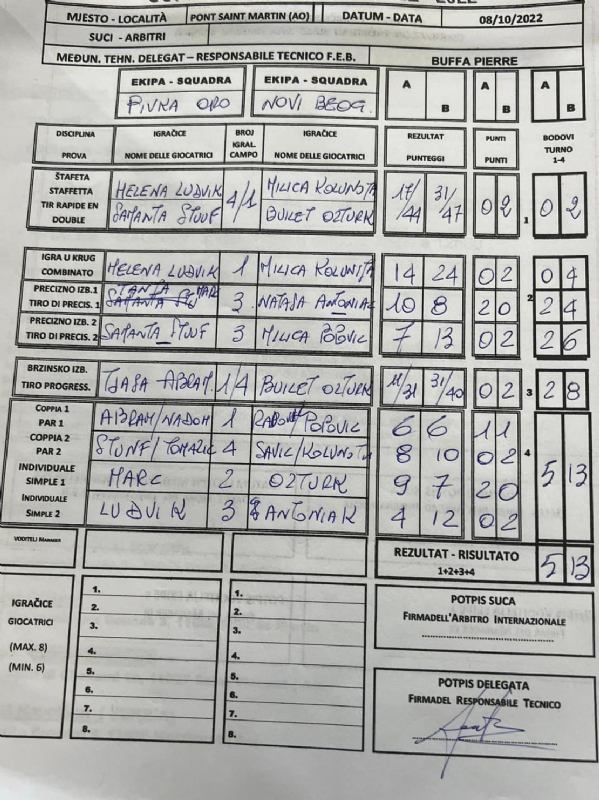 MJESTO - LOCALITÀ PONT SAINT MARTIN (AO) DATUM - DATA 08/10/2022
SUCI - ARBITRI
MEĐUN. TEHN. DELEGAT – RESPONSABILE TECNICO F.E.B. BUFFA PIERRE
EKIPA - SQUADRA EKIPA - SQUADRA A B A B A B
PIVKA ORO NOVI BEOG.
DISCIPLINA IGRAČICE BROJ IGRAČICE REZULTAT PUNTI BODOVI
PROVA NOME DELLE GIOCATRICI IGRAL. CAMPO NOME DELLE GIOCATRICI PUNTEGGI PUNTI TURNO 1-4
ŠTAFETA
STAFFETTA HELENA LUDVIK 4/1 MILICA 17/44 31/47 0 2 1 0 2
TIR RAPIDE EN DOUBLE SAMANTA BUILET OZTURK
IGRA U KRUG
COMBINATO HELENA LUDVIK 1 MILICA 14 24 0 2 0 4
PRECIZNO IZB.1 TANJA MARC
TIRO DI PRECIS. 1 3 NATASA ANTONIAK 10 8 2 0 2 2 4
PRECIZNO IZB. 2
TIRO DI PRECIS. 2 SAMANTA 3 MILICA POPOVIC 7 13 0 2 2 6
BRZINSKO IZB.
TIRO PROGRESS. TJASA ABRAM. 1/4 BUILET OZTURK 11/31 31/40 0 2 3 2 8
COPPIA 1
PAR 1 ABRAM/NADOH 1 /POPOVIC 6 6 1 1
COPPIA 2
PAR 2 /TOMAZIC 4 SAVIC/ 8 10 0 2 4 5 13
INDIVIDUALE
SIMPLE 1 MARC 2 OZTURK 9 7 2 0
INDIVIDUALE
SIMPLE 2 LUDVIK 3 ANTONIAK 4 12 0 2
VODITELJ MANAGER REZULTAT - RISULTATO 5 13
1+2+3+4
IGRAČICE
GIOCATRICI
(MAX. 8)
(MIN. 6)
1. 1.
2. 2.
3. 3.
4. 4.
5. 5.
6. 6.
7. 7.
8. 8.
POTPIS SUCA
FIRMADELL'ARBITRO INTERNAZIONALE
POTPIS DELEGATA
FIRMADEL RESPONSABILE TECNICO